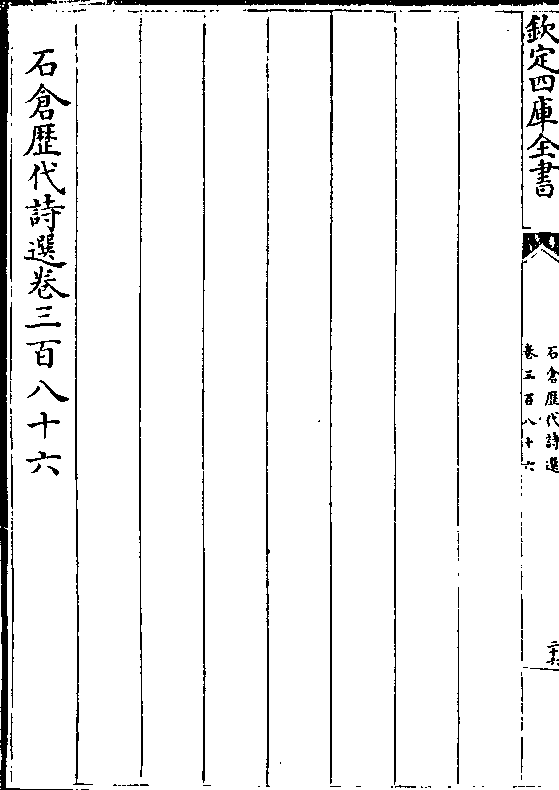 欽定四庫全書
石倉歷代詩選
卷三百八十六
石倉歷代詩選卷三百八十六